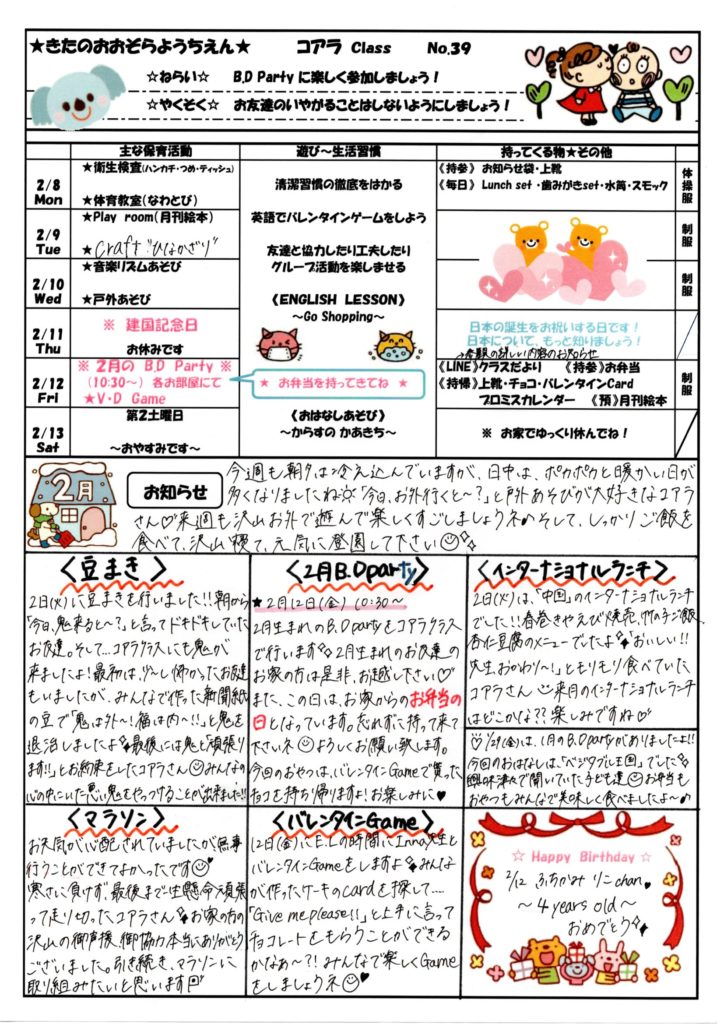 ★きたのおおぞらようちえん★ コアラ Class No.39
☆ねらい☆ B,D Party に楽しく参加しましょう！
☆やくそく☆ お友達のいやがることはしないようにしましょう！
主な保育活動 遊び～生活習慣 持ってくる物★その他
2/8 Mon
★衛生検査(ハンカチ・つめ・ティッシュ)
★体育教室(なわとび)
清潔習慣の徹底をはかる
《持参》 お知らせ袋・上靴
《毎日》 Lunch set ・歯みがきset・水筒・スモック
体操服
2/9 Tue
★Play room(月刊絵本)
★Craft“ひなかざり”
英語でバレンタインゲームをしよう
友達と協力したり工夫したり
制服
2/10 Wed
★音楽リズムあそび
★戸外あそび
グループ活動を楽しませる
《ENGLISH LESSON》
～Go Shopping～
制服
2/11 Thu
※ 建国記念日
お休みです
日本の誕生をお祝いする日です！
日本について、もっと知りましょう！
2/12 Fri
※ 2月の B,D Party ※
(10:30～) 各お部屋にて
★V・D Game
★ お弁当を持ってきてね ★
《LINE》クラスだより 《持参》お弁当
《持帰》上靴・チョコ・バレンタインCard
プロミスカレンダー 《預》月刊絵本
制服
2/13 Sat
第2土曜日
～おやすみです～
《おはなしあそび》
～からすの かあきち～
※ お家でゆっくり休んでね！
2月
お知らせ
今週も朝夕は冷え込んでいますが、日中は、ポカポカと暖かい日が
多くなりましたね「今日、お外行くと～？」と戸外あそびが大好きなコアラ
さん♡来週も沢山お外で遊んで楽しくすごしましょうネ♪そして、しっかりご飯を
食べて、沢山寝て、元気に登園して下さい
〈豆まき〉
2日(火)に豆まきを行いました!!朝から
「今日、鬼来ると～？」と言ってドキドキしていた
お友達。そして…コアラクラスにも鬼が
来ましたよ！最初は、少し怖かったお友達
もいましたが、みんなで作った新聞紙
の豆で「鬼は外～！福は内～!!」と鬼を
退治しましたよ最後には鬼と「頑張り
ます!!」とお約束をしたコアラさんみんなの
心の中にいた悪い鬼をやっつけることが出来ました!!
〈2月B.Dparty〉
★2月12日(金) 10:30～
2月生まれのB.DpartyをコアラクラS
で行います2月生まれのお友達の
お家の方は是非、お越し下さい♡
また、この日は、お家からのお弁当の
日となっています。忘れずに持って来て
下さいネよろしくお願い致します。
今回のおやつは、バレンタインGameで貰った
チョコを持ち帰りますよ！お楽しみに♥
〈インターナショナルランチ〉
2日(火)は、「中国」のインターナショナルランチ
でした!!春巻きやえび焼売、竹の子ご飯、
杏仁豆腐のメニューでしたよ「おいしい!!
先生おかわり～」ともりもり食べていた
コアラさん 来月のインターナショナルランチ
はどこかな??楽しみですね♡
♡1/29(金)は、1月のB.Dpartyがありましたよ!!
今回のおはなしは、「ベジタブル王国」でした
興味津々で聞いていた子ども達お弁当も
おやつもみんなで美味しく食べましたよ～♪
〈マラソン〉
お天気が心配されていましたが無事
行うことができてよかったです
寒さに負けず、最後まで一生懸命頑張
って走り切ったコアラさんお家の方の
沢山の御声援、御協力本当にありがとう
ございました。引き続き、マラソンに
取り組みたいと思います
〈バレンタインGame〉
12日(金)にE.Lの時間にInna先生と
バレンタインGameをしますよみんな
が作ったケーキのcardを探して…
「Give me please!!」と上手に言って
チョコレートをもらうことができる
かなあ～？！みんなで楽しくGame
をしましょうネ♥
☆ Happy Birthday ☆
2/12 ふちがみ りこchan♥
～4 years old～
おめでとう